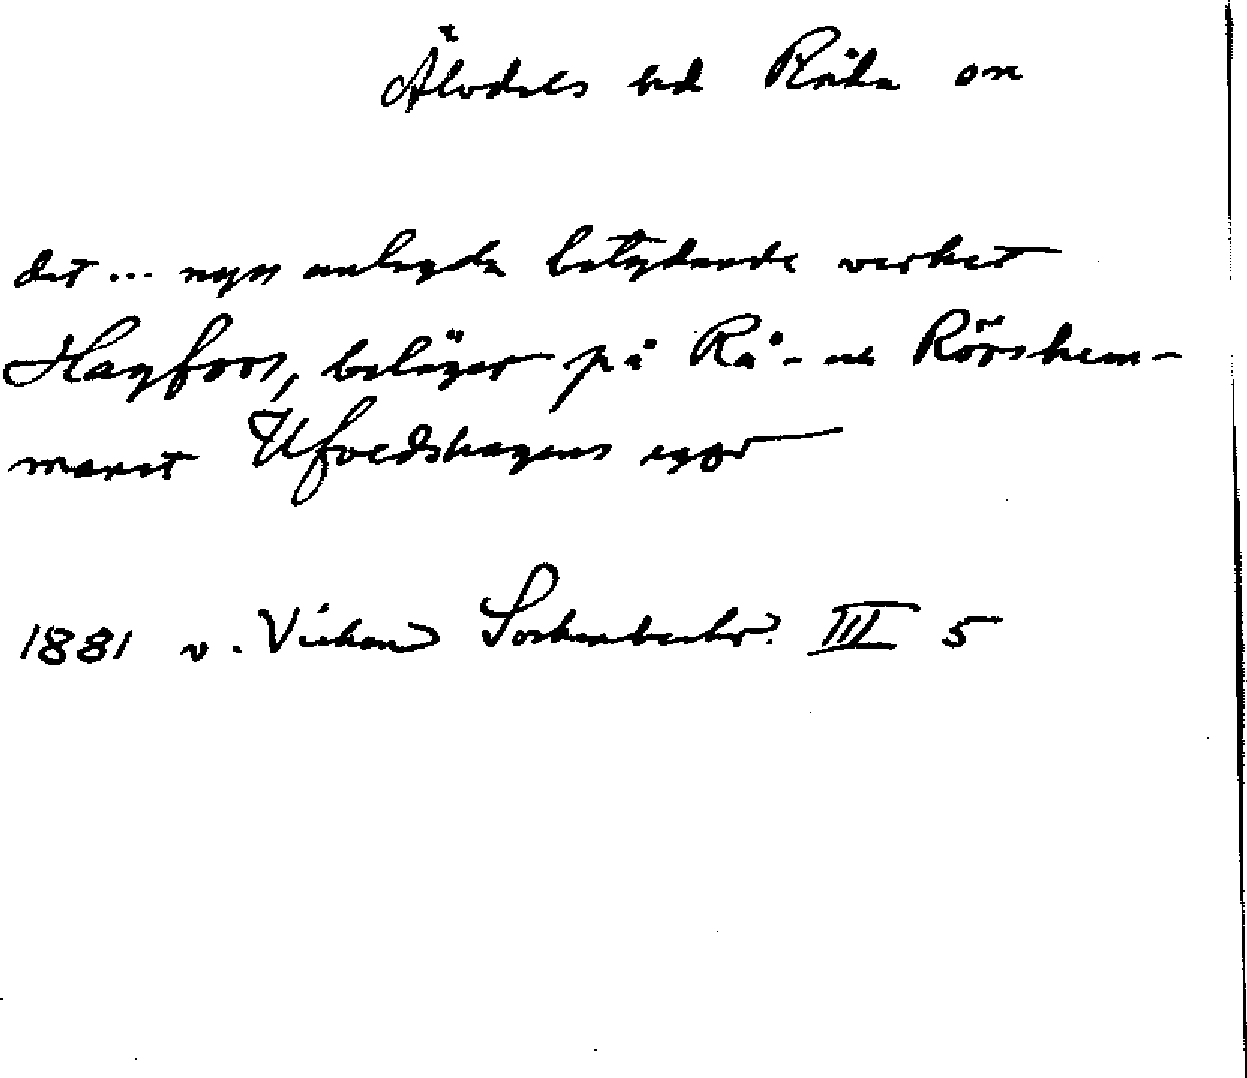 Älvdals hd Råda sn
det ... nyss anlagda betydande verket
Hagfors, beläget på Rå- och Rörshem-
manet Ufvedshagens egor
1881 v. Vicken Sockenbeskr. III 5